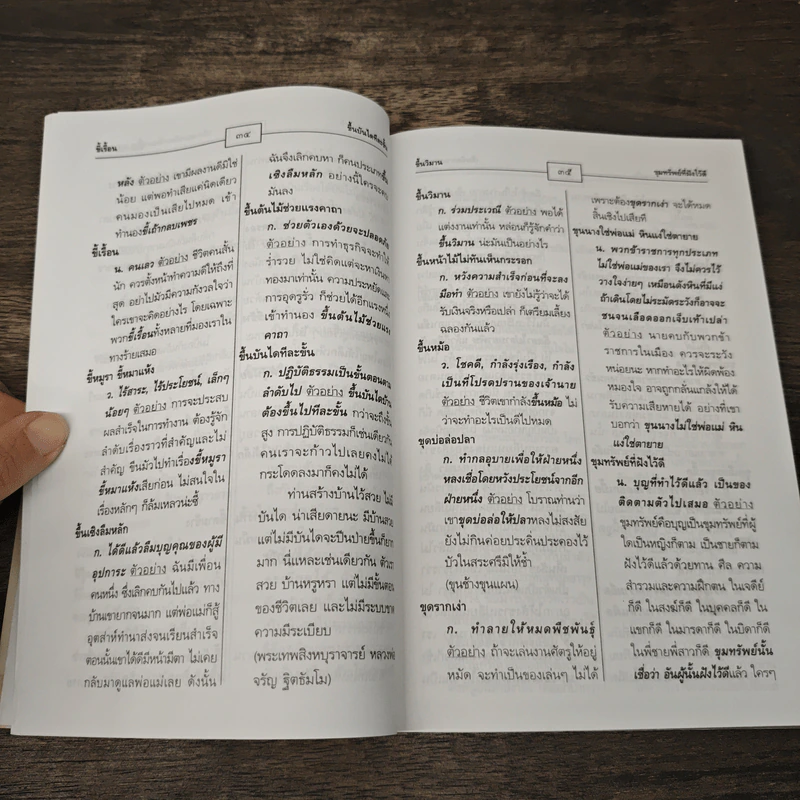 ขี้เรื้อน
๓๔
ขึ้นบันไดทีละขั้น
หลัง ตัวอย่าง เขามีผลงานดีมิใช่
น้อย แต่พอทำเสียแค่นิดเดียว
คนมองเป็นเสียไปหมด เข้า
ทำนองขี้เถ้ากลบเพชร
ขี้เรื้อน
น. คนเลว ตัวอย่าง ชีวิตคนสั้น
นัก ควรตั้งหน้าทำความดีให้ถึงที่
สุด อย่าไปมัวมีความกังวลใจว่า
ใครเขาจะคิดอย่างไร โดยเฉพาะ
พวกขี้เรื้อนทั้งหลายที่มองเราใน
ทางร้ายเสมอ
ขี้หมูรา ขี้หมาแห้ง
ว. ไร้สาระ, ไร้ประโยชน์, เล็กๆ
น้อยๆ ตัวอย่าง การจะประสบ
ผลสำเร็จในการทำงาน ต้องรู้จัก
ลำดับเรื่องราวที่สำคัญและไม่
สำคัญ ขืนมัวไปทำเรื่องขี้หมูรา
ขี้หมาแห้งเสียก่อน ไม่สนใจใน
เรื่องหลักๆ ก็ล้มเหลวน่ะซี้
ขึ้นเชิงลืมหลัก
ก. ได้ดีแล้วลืมบุญคุณของผู้มี
อุปการะ ตัวอย่าง ฉันมีเพื่อน
คนหนึ่ง ซึ่งเลิกคบกันไปแล้ว ทาง
บ้านเขายากจนมาก แต่พ่อแม่ก็สู้
อุตส่าห์ทำนาส่งจนเรียนสำเร็จ
ตอนนั้นเขาได้ดีมีหน้ามีตา ไม่เคย
กลับมาดูแลพ่อแม่เลย ดังนั้น
ฉันจึงเลิกคบหา ก็คนประเภทขึ้น
เชิงลืมหลัก อย่างนี้ใครจะคบ
มันลง
ขึ้นต้นไม้ช่วยแรงคาถา
ก. ช่วยตัวเองด้วยจะปลอดภัย
ตัวอย่าง การทำธุรกิจจะทำให้
ร่ำรวย ไม่ใช่คิดแต่จะหาเงินหา
ทองมาเท่านั้น ความประหยัดและ
การอุดรูรั่ว ก็ช่วยได้อีกแรงหนึ่ง
เข้าทำนอง ขึ้นต้นไม้ช่วยแรง
คาถา
ขึ้นบันไดทีละขั้น
ก. ปฏิบัติธรรมเป็นขั้นตอนตาม
ลำดับไป ตัวอย่าง ขึ้นบันไดบ้าน
ต้องขึ้นไปทีละขั้น กว่าจะถึงชั้น
สูง การปฏิบัติธรรมก็เช่นเดียวกัน
คนเราจะก้าวไปเลยคงไม่ได้
กระโดดลงมาก็คงไม่ได้
ท่านสร้างบ้านไว้สวย ไม่มี
บันได น่าเสียดายนะ มีบ้านสวย
แต่ไม่มีบันไดจะปีนป่ายขึ้นก็ยาก
มาก นี่แหละเช่นเดียวกัน ตัวเรา
สวย บ้านหรูหรา แต่ไม่มีขั้นตอน
ของชีวิตเลย และไม่มีระบบขาด
ความมีระเบียบ
(พระเทพสิงหบุราจารย์ หลวงพ่อ
จรัญ ฐิตธัมโม)
ขึ้นวิมาน
๓๕
ขุมทรัพย์ที่ฝังไว้ดี
ขึ้นวิมาน
ก. ร่วมประเวณี ตัวอย่าง พอได้
แต่งงานเท่านั้น หล่อนก็รู้จักคำว่า
ขึ้นวิมาน น่ะมันเป็นอย่างไร
ขึ้นหน้าไม้ไม่ทันเห็นกระรอก
ก. หวังความสำเร็จก่อนที่จะลง
มือทำ ตัวอย่าง เขายังไม่รู้ว่าจะได้
รับเงินจริงหรือเปล่า ก็เตรียมเลี้ยง
ฉลองกันแล้ว
ขึ้นหม้อ
ว. โชคดี, กำลังรุ่งเรือง, กำลัง
เป็นที่โปรดปรานของเจ้านาย
ตัวอย่าง ชีวิตเขากำลังขึ้นหม้อ ไม่
ว่าจะทำอะไรเป็นดีไปหมด
ขุดบ่อล่อปลา
ก. ทำกลอุบายเพื่อให้ฝ่ายหนึ่ง
หลงเชื่อโดยหวังประโยชน์จากอีก
ฝ่ายหนึ่ง ตัวอย่าง โบราณท่านว่า
เขาขุดบ่อล่อให้ปลาหลงไม่สงสัย
ยังไม่กินค่อยประดิ่นประคองไว้
บัวในสระศรีมิให้ช้ำ
(ขุนช้างขุนแผน)
ขุดรากเง่า
ก. ทำลายให้หมดพืชพันธุ์
ตัวอย่าง ถ้าจะเล่นงานศัตรูให้อยู่
หมัด จะทำเป็นของเล่นๆ ไม่ได้
เพราะต้องขุดรากเง่า จะได้หมด
สิ้นเชิงไปเสียที
ขุนนางใช่พ่อแม่ หินแง่ใช่ตายาย
น. พวกข้าราชการทุกประเภท
ไม่ใช่พ่อแม่ของเรา จึงไม่ควรไว้
วางใจง่ายๆ เหมือนดังหินที่มีแง่
ถ้าเดินโดยไม่ระมัดระวังก็อาจจะ
ชนจนเลือดออกเจ็บเท้าเปล่า
ตัวอย่าง นายคบกับพวกข้า
ราชการในเมือง ควรจะระวัง
หน่อยนะ หากทำอะไรให้ผิดพ้อง
หมองใจ อาจถูกกลั่นแกล้งให้ได้
รับความเสียหายได้ อย่างที่เขา
บอกว่า ขุนนางไม่ใช่พ่อแม่ หิน
แง่ใช่ตายาย
ขุมทรัพย์ที่ฝังไว้ดี
น. บุญที่ทำไว้ดีแล้ว เป็นของ
ติดตามตัวไปเสมอ ตัวอย่าง
ขุมทรัพย์คือบุญเป็นขุมทรัพย์ที่ผู้
ใดเป็นหญิงก็ตาม เป็นชายก็ตาม
ฝังไว้ดีแล้วด้วยทาน ศีล ความ
สำรวมและความฝึกตน ในเจดีย์
ก็ดี ในสงฆ์ก็ดี ในบุคคลก็ดี ใน
แขกก็ดี ในมารดาก็ดี ในบิดาก็ดี
ในพี่ชายพี่สาวก็ดี ขุมทรัพย์นั้น
เชื่อว่า อันผู้นั้นฝังไว้ดีแล้ว ใครๆ